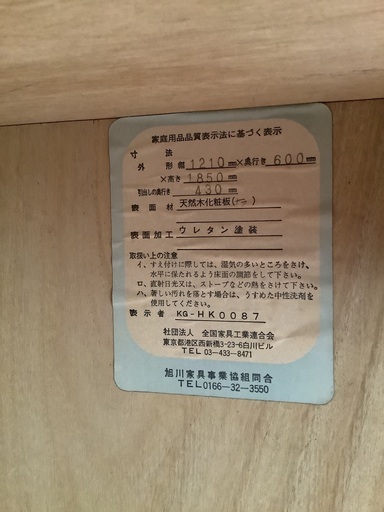 家庭用品品質表示法に基づく表示
寸法
外形 幅1210㎜×奥行き600㎜
×高さ1850㎜
引出しの奥行き430㎜
表面材 天然木化粧板(ニレ)
表面加工 ウレタン塗装
取扱い上の注意
イ、すえ付けに際しては、湿気の多いところをさけ、
水平に保たれるよう床面の調節をして下さい。
ロ、直射日光又は、ストーブなどの熱をさけて下さい。
ハ、著しい汚れを落とす場合は、うすめた中性洗剤を
使用してください。
表示者 KG-HK0087
社団法人 全国家具工業連合会
東京都港区西新橋3-23-6白川ビル
TEL 03-433-8471
旭川家具事業協組同合
TEL0166-32-3550